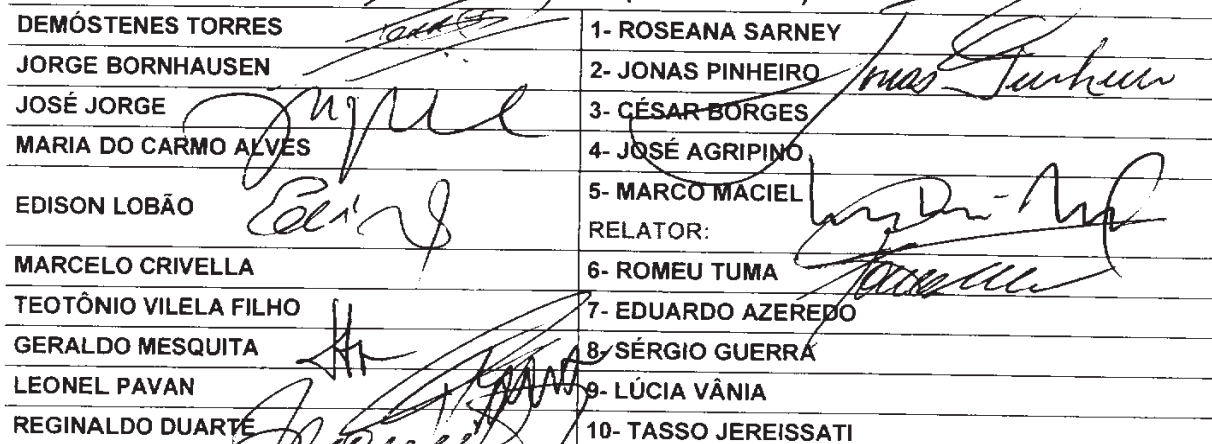 DEMÓSTENES TORRES 1- ROSEANA SARNEY
JORGE BORNHAUSEN 2- JONAS PINHEIRO Jonas Pinheiro
JOSÉ JORGE 3- CÉSAR BORGES
MARIA DO CARMO ALVES 4- JOSÉ AGRIPINO
EDISON LOBÃO 5- MARCO MACIEL
RELATOR:
MARCELO CRIVELLA 6- ROMEU TUMA
TEOTÔNIO VILELA FILHO 7- EDUARDO AZEREDO
GERALDO MESQUITA 8- SÉRGIO GUERRA
LEONEL PAVAN 9- LÚCIA VÂNIA
REGINALDO DUARTE 10- TASSO JEREISSATI